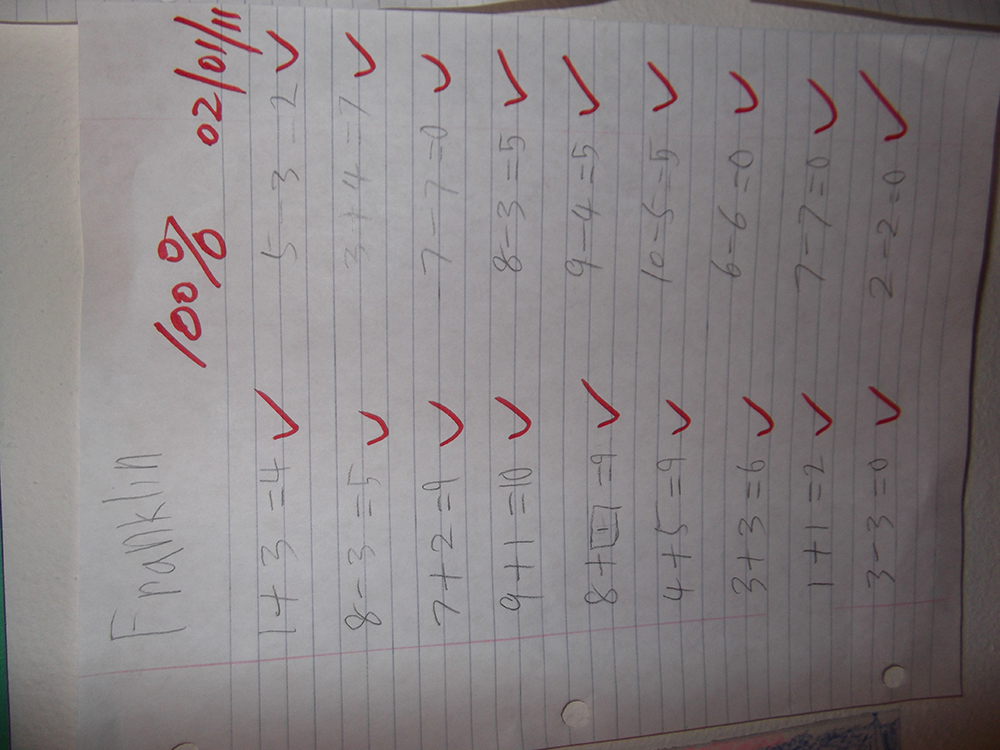 Franklin 100% 02/01/11
1 + 3 = 4 ✓ 5 - 3 = 2 ✓
8 - 3 = 5 ✓ 3 + 4 = 7 ✓
7 + 2 = 9 ✓ 7 - 7 = 0 ✓
9 + 1 = 10 ✓ 8 - 3 = 5 ✓
8 + 1 = 9 ✓ 9 - 4 = 5 ✓
4 + 5 = 9 ✓ 10 - 5 = 5 ✓
3 + 3 = 6 ✓ 6 - 6 = 0 ✓
1 + 1 = 2 ✓ 7 - 7 = 0 ✓
3 - 3 = 0 ✓ 2 - 2 = 0 ✓